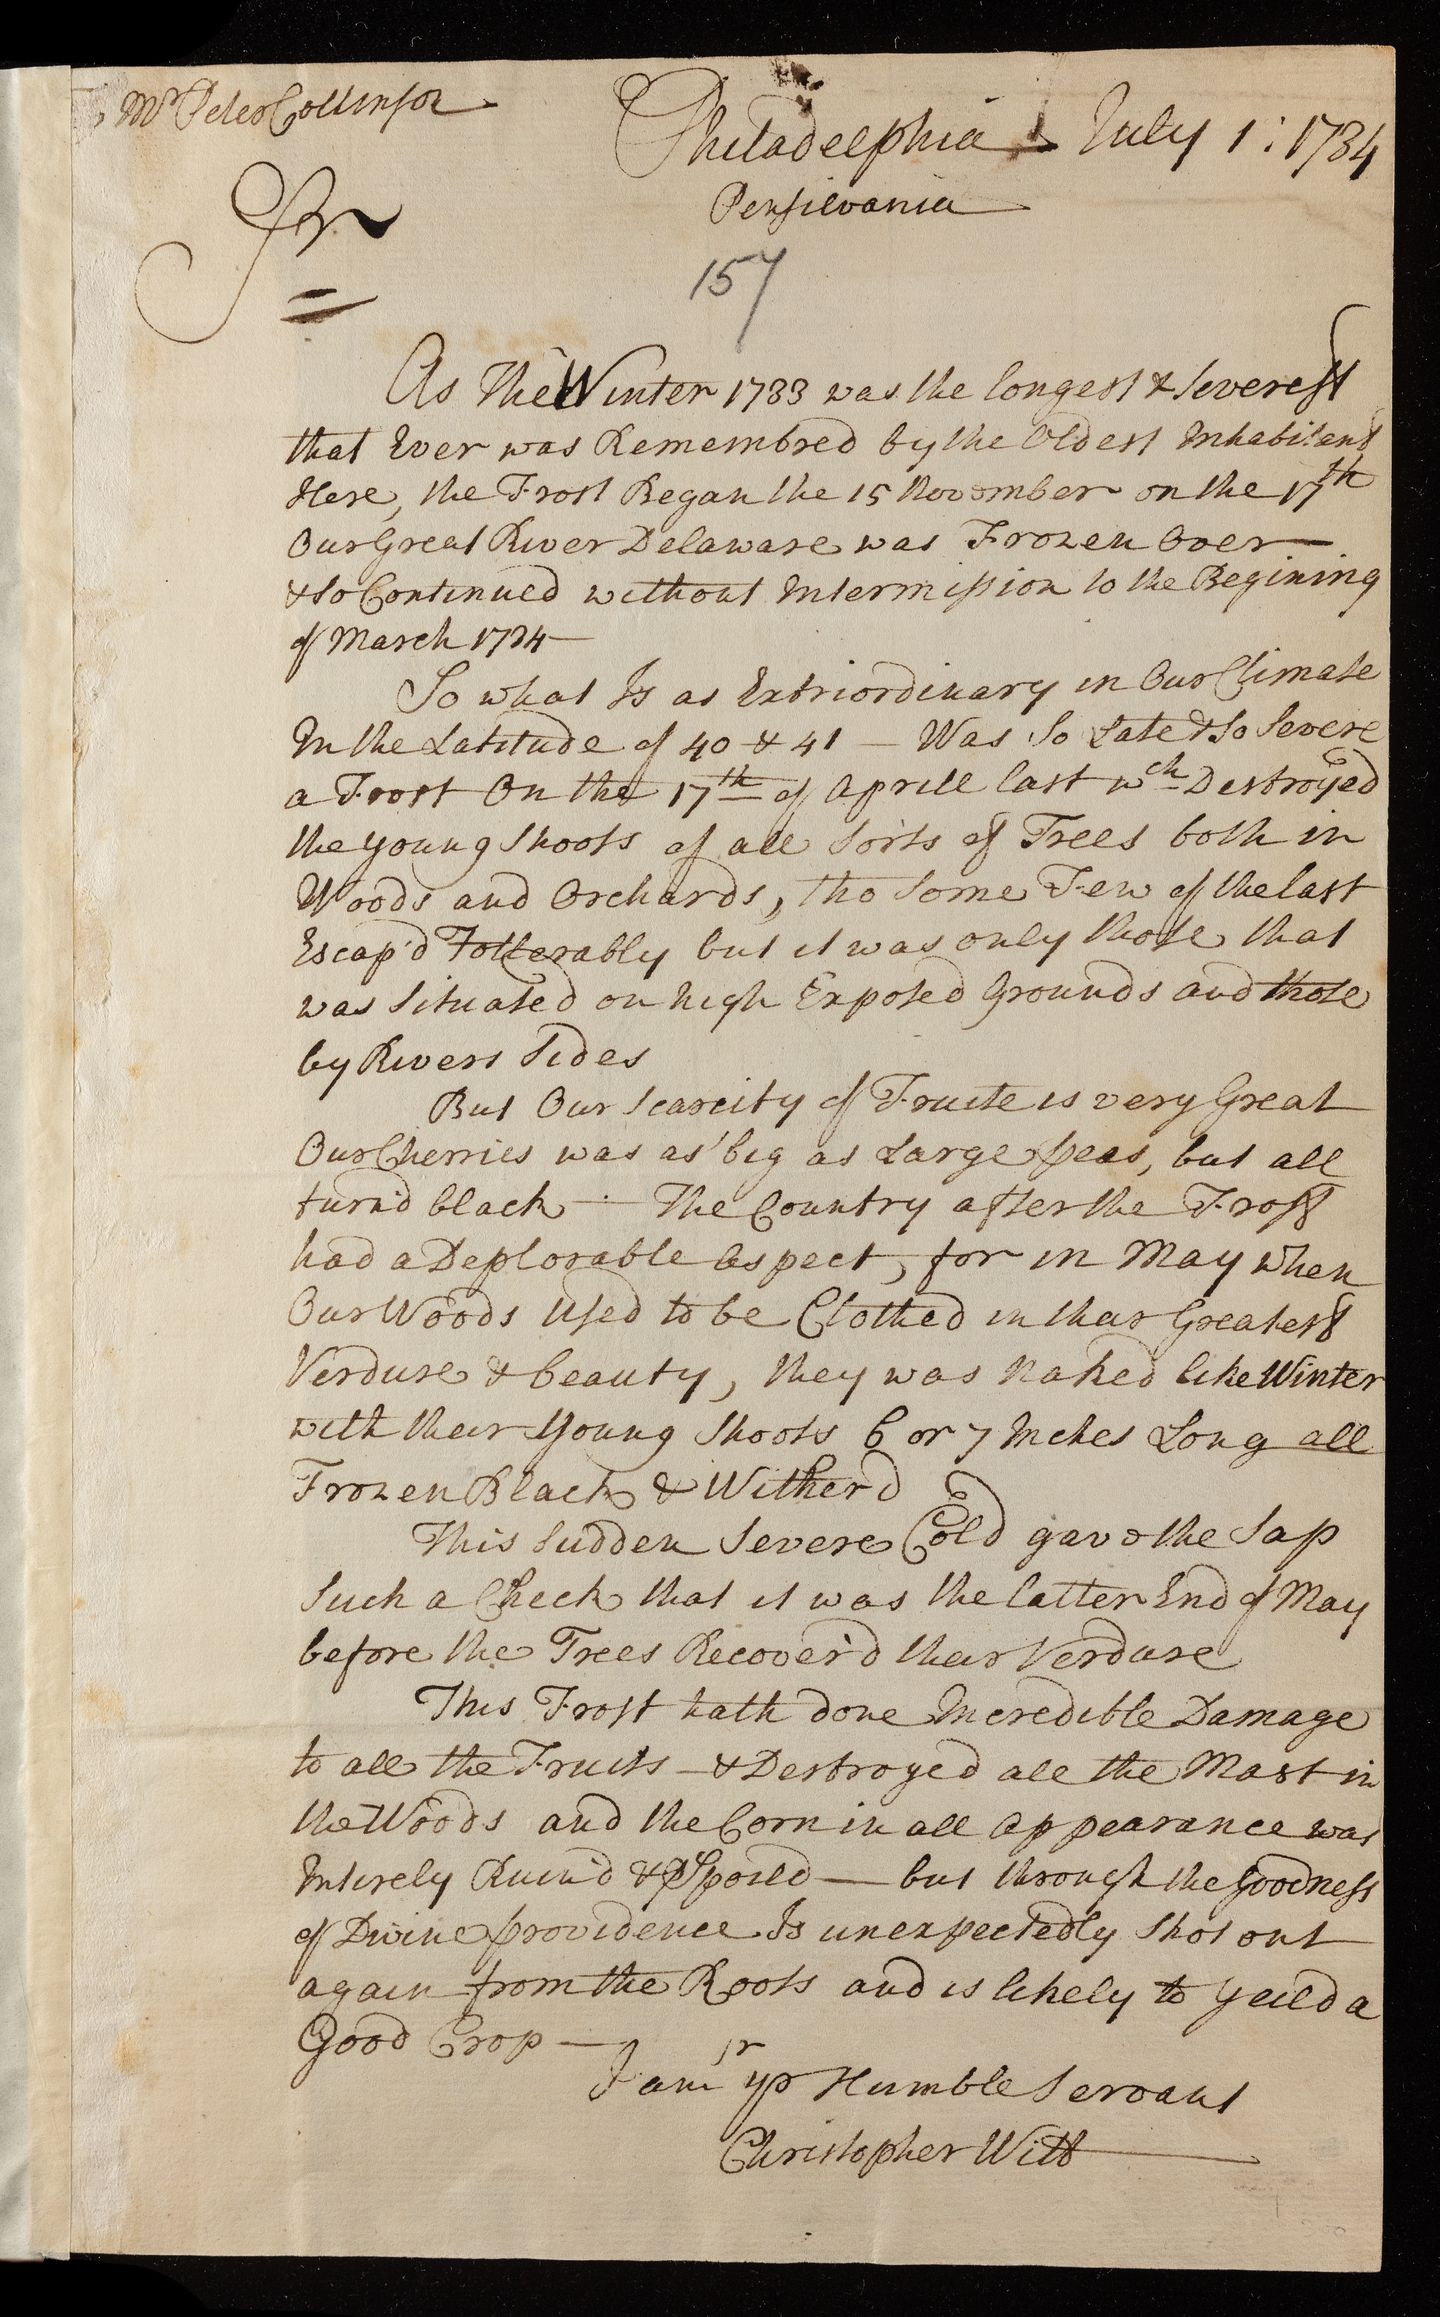 Mr Peter Collinson
Philadelphia July 1: 1734
Pensilvania
Sr
157
As The Winter 1733 was the longest & severest
that Ever was Remembred by the Oldest Inhabitant
Here, the Frost Began the 15 November on the 17th
Our Great River Delaware was Frozen Over
& so Continued without Intermission to the Begining
of March 1734
So what Is as Extriordinary in Our Climate
In the Latitude of 40 & 41 — Was So Late & So Severe
a Frost On the 17th of Aprill last wch Destroyed
the young Shoots of all Sorts of Trees both in
Woods and Orchards, tho some Few of the last
Escap'd Tollerably but it was only those that
was Situated on high Exposed Grounds and those
by Rivers Sides
But Our Scarcity of Fruite is very Great
Our Cherries was as big as Large peas, but all
turn'd black — The Country after the Frost
had a Deplorable Aspect, for in May when
Our Woods Used to be Clothed in their Greatest
Verdure & beauty, they was Naked like Winter
with their Young Shoots 6 or 7 Inches Long all
Frozen Black & Wither'd
This Sudden Severe Cold gave the Sap
Such a Check that it was the latter End of May
before the Trees Recover'd their Verdure
This Frost hath done Incredible Damage
to all the Fruits — & Destroyed all the Mast in
the Woods and the Corn in all appearance was
Intirely Ruin'd & Spoild — but through the Goodness
of Divine providence Is unexpectedly Shot out
again from the Roots and is likely to yeild a
Good Crop —
I am Sr yr Humble Servant
Christopher Witt